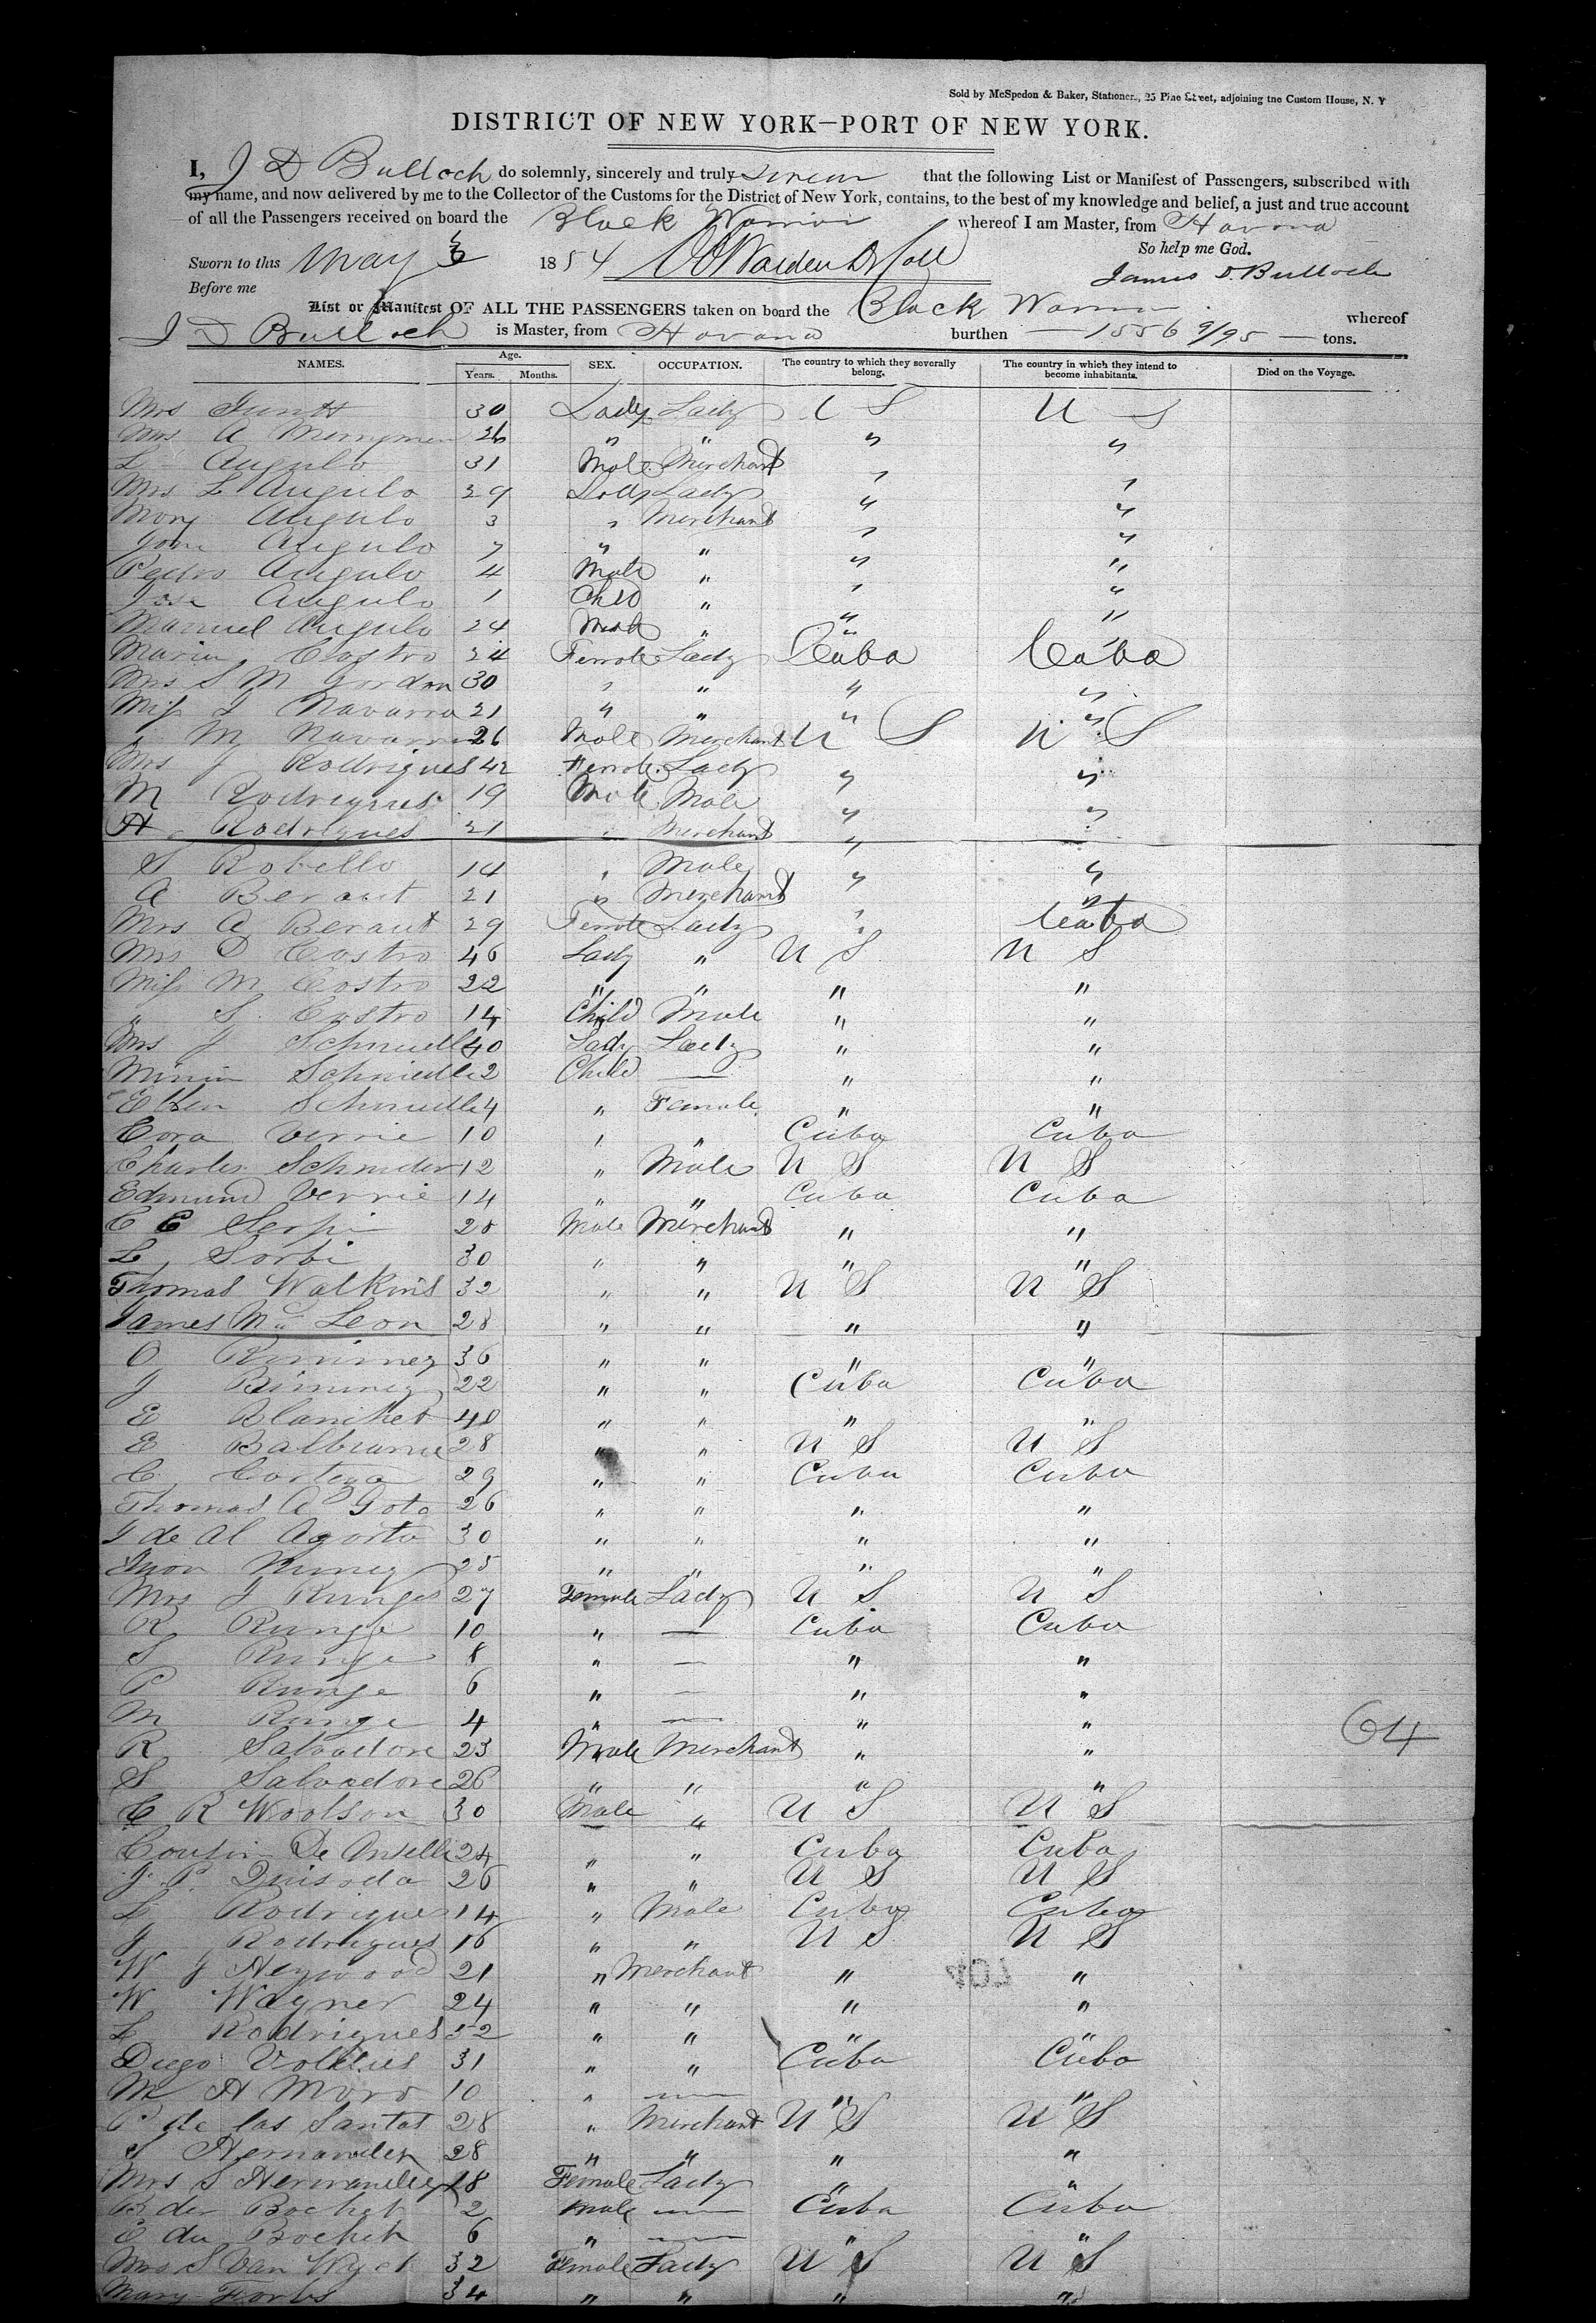 Sold by McSpedon & Baker, Stationers, 25 Pine Street, adjoining the Custom House, N. Y
DISTRICT OF NEW YORK—PORT OF NEW YORK.
I, J D Bulloch do solemnly, sincerely and truly swear that the following List or Manifest of Passengers, subscribed with
my name, and now delivered by me to the Collector of the Customs for the District of New York, contains, to the best of my knowledge and belief, a just and true account
of all the Passengers received on board the Black Warrior whereof I am Master, from Havana
So help me God.
Sworn to this May 1854
James D. Bulloch
Before me
List or Manifest OF ALL THE PASSENGERS taken on board the Black Warrior whereof
J D Bulloch is Master, from Havana burthen 1556 9/95 tons.
NAMES. Age. Years. Months. SEX. OCCUPATION. The country to which they severally belong. The country in which they intend to become inhabitants. Died on the Voyage.
Mrs 30 Lady Lady U S U S
Mrs A Merryman 26 " " " "
L Angulo 31 Male Merchant " "
Mrs L Angulo 29 Lady Lady " "
Mary Angulo 3 " Merchant " "
Angulo 7 " " " "
Pedro Angulo 4 Male " " "
Jose Angulo 1 Child " " "
Manuel Angulo 24 Male " " "
Maria Castro 24 Female Lady Cuba Cuba
Mrs S M Gordon 30 " " " "
Miss J Navarro 21 " " " "
M Navarro 26 Male Merchant U S U S
Mrs J Rodrigues 42 Female Lady " "
M Rodrigues 19 Male Male " "
A Rodrigues 21 " Merchant "
S Robello 14 " Male " "
A Beraut 21 " Merchant " "
Mrs A Beraut 29 Female Lady " Cuba
Mrs D Castro 46 Lady " U S U S
Miss M Castro 22 " " " "
" S. Castro 14 Child Male " "
Mrs J 40 Lady Lady " "
2 Child — " "
Ellen 4 " Female " "
Cora Verrie 10 " " Cuba Cuba
Charles Schnider 12 " Male U S U S
Edmund Verrie 14 " " Cuba Cuba
C C 20 Male Merchant " "
L Sorbi 30 " " " "
Thomas Walkins 32 " " U S U S
James Mc Leon 28 " " " "
O 36 " " " "
J 22 " " Cuba Cuba
E Blanchet 40 " " " "
E 28 " " U S U S
C Cortega 29 " " Cuba Cuba
Thomas A Goto 26 " " " "
J de al Agorta 30 " " " "
Juan Nunez 25 " " " "
Mrs J Runges 27 Female Lady U S U S
R Runge 10 " — Cuba Cuba
S Runge 8 " — " "
P Runge 6 " — " "
M Runge 4 " — " "
64
R Salvadore 23 Male Merchant " "
S Salvadore 26 " " " "
C R Woolson 30 Male " U S U S
De 24 " " Cuba Cuba
J. P. Quisoda 26 " " U S U S
L Rodrigues 14 " Male Cuba Cuba
J Rodrigues 16 " " U S U S
W J Heywood 21 " Merchant " "
W Wagner 24 " " " "
L Rodrigues 32 " " " "
Diego 31 " " Cuba Cuba
M A Moro 10 " — " "
P de las Santos 28 " Merchant U S U S
S Hernandez 28 " " " "
Mrs S Hernandez 18 Female Lady " "
Bochet 2 Male — Cuba Cuba
E du Bochet 6 " — " "
Mrs S Van Wyck 32 Female Lady U S U S
Mary Forbs 34 " " " "